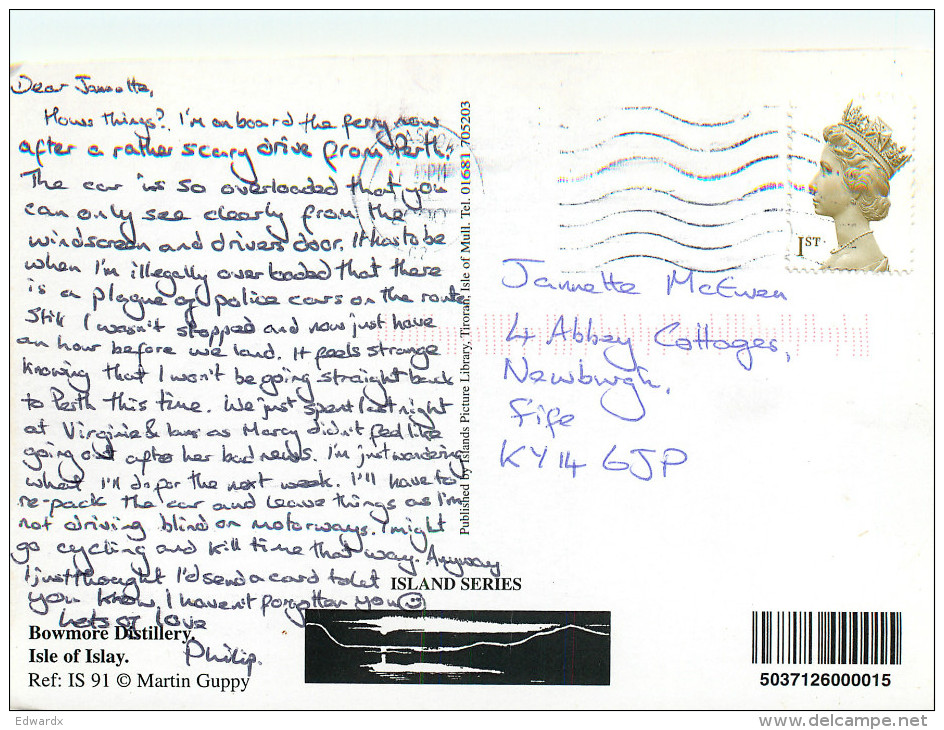 Dear Jannette,
Hows things? I'm on board the ferry now
after a rather scary drive from Perth.
The car is so overloaded that you
can only see clearly from the
windscreen and drivers door. It has to be
when I'm illegally overloaded that there
is a plague of police cars on the route
Still I wasn't stopped and now just have
an hour before we land. It feels strange
knowing that I won't be going straight back
to Perth this time. We just spent last night
at Virginie & Ians as Marcy didn't feel like
going out after her bad news. I'm just wondering
what I'll do for the next week. I'll have to
re-pack the car and leave things as I'm
not driving blind on motorways. I might
go cycling and kill time that way. Anyway
I just thought I'd send a card to let
you know I haven't forgotten you
Lots of love
Philip.
Bowmore Distillery,
Isle of Islay.
Ref: IS 91 © Martin Guppy
Published by Islands Picture Library, Tiroran, Isle of Mull. Tel. 01681 705203
ISLAND SERIES
1ST
Jannette McEwen
4 Abbey Cottages,
Newburgh,
Fife
KY14 6JP
5037126000015
Edwardx
www.delcampe.net